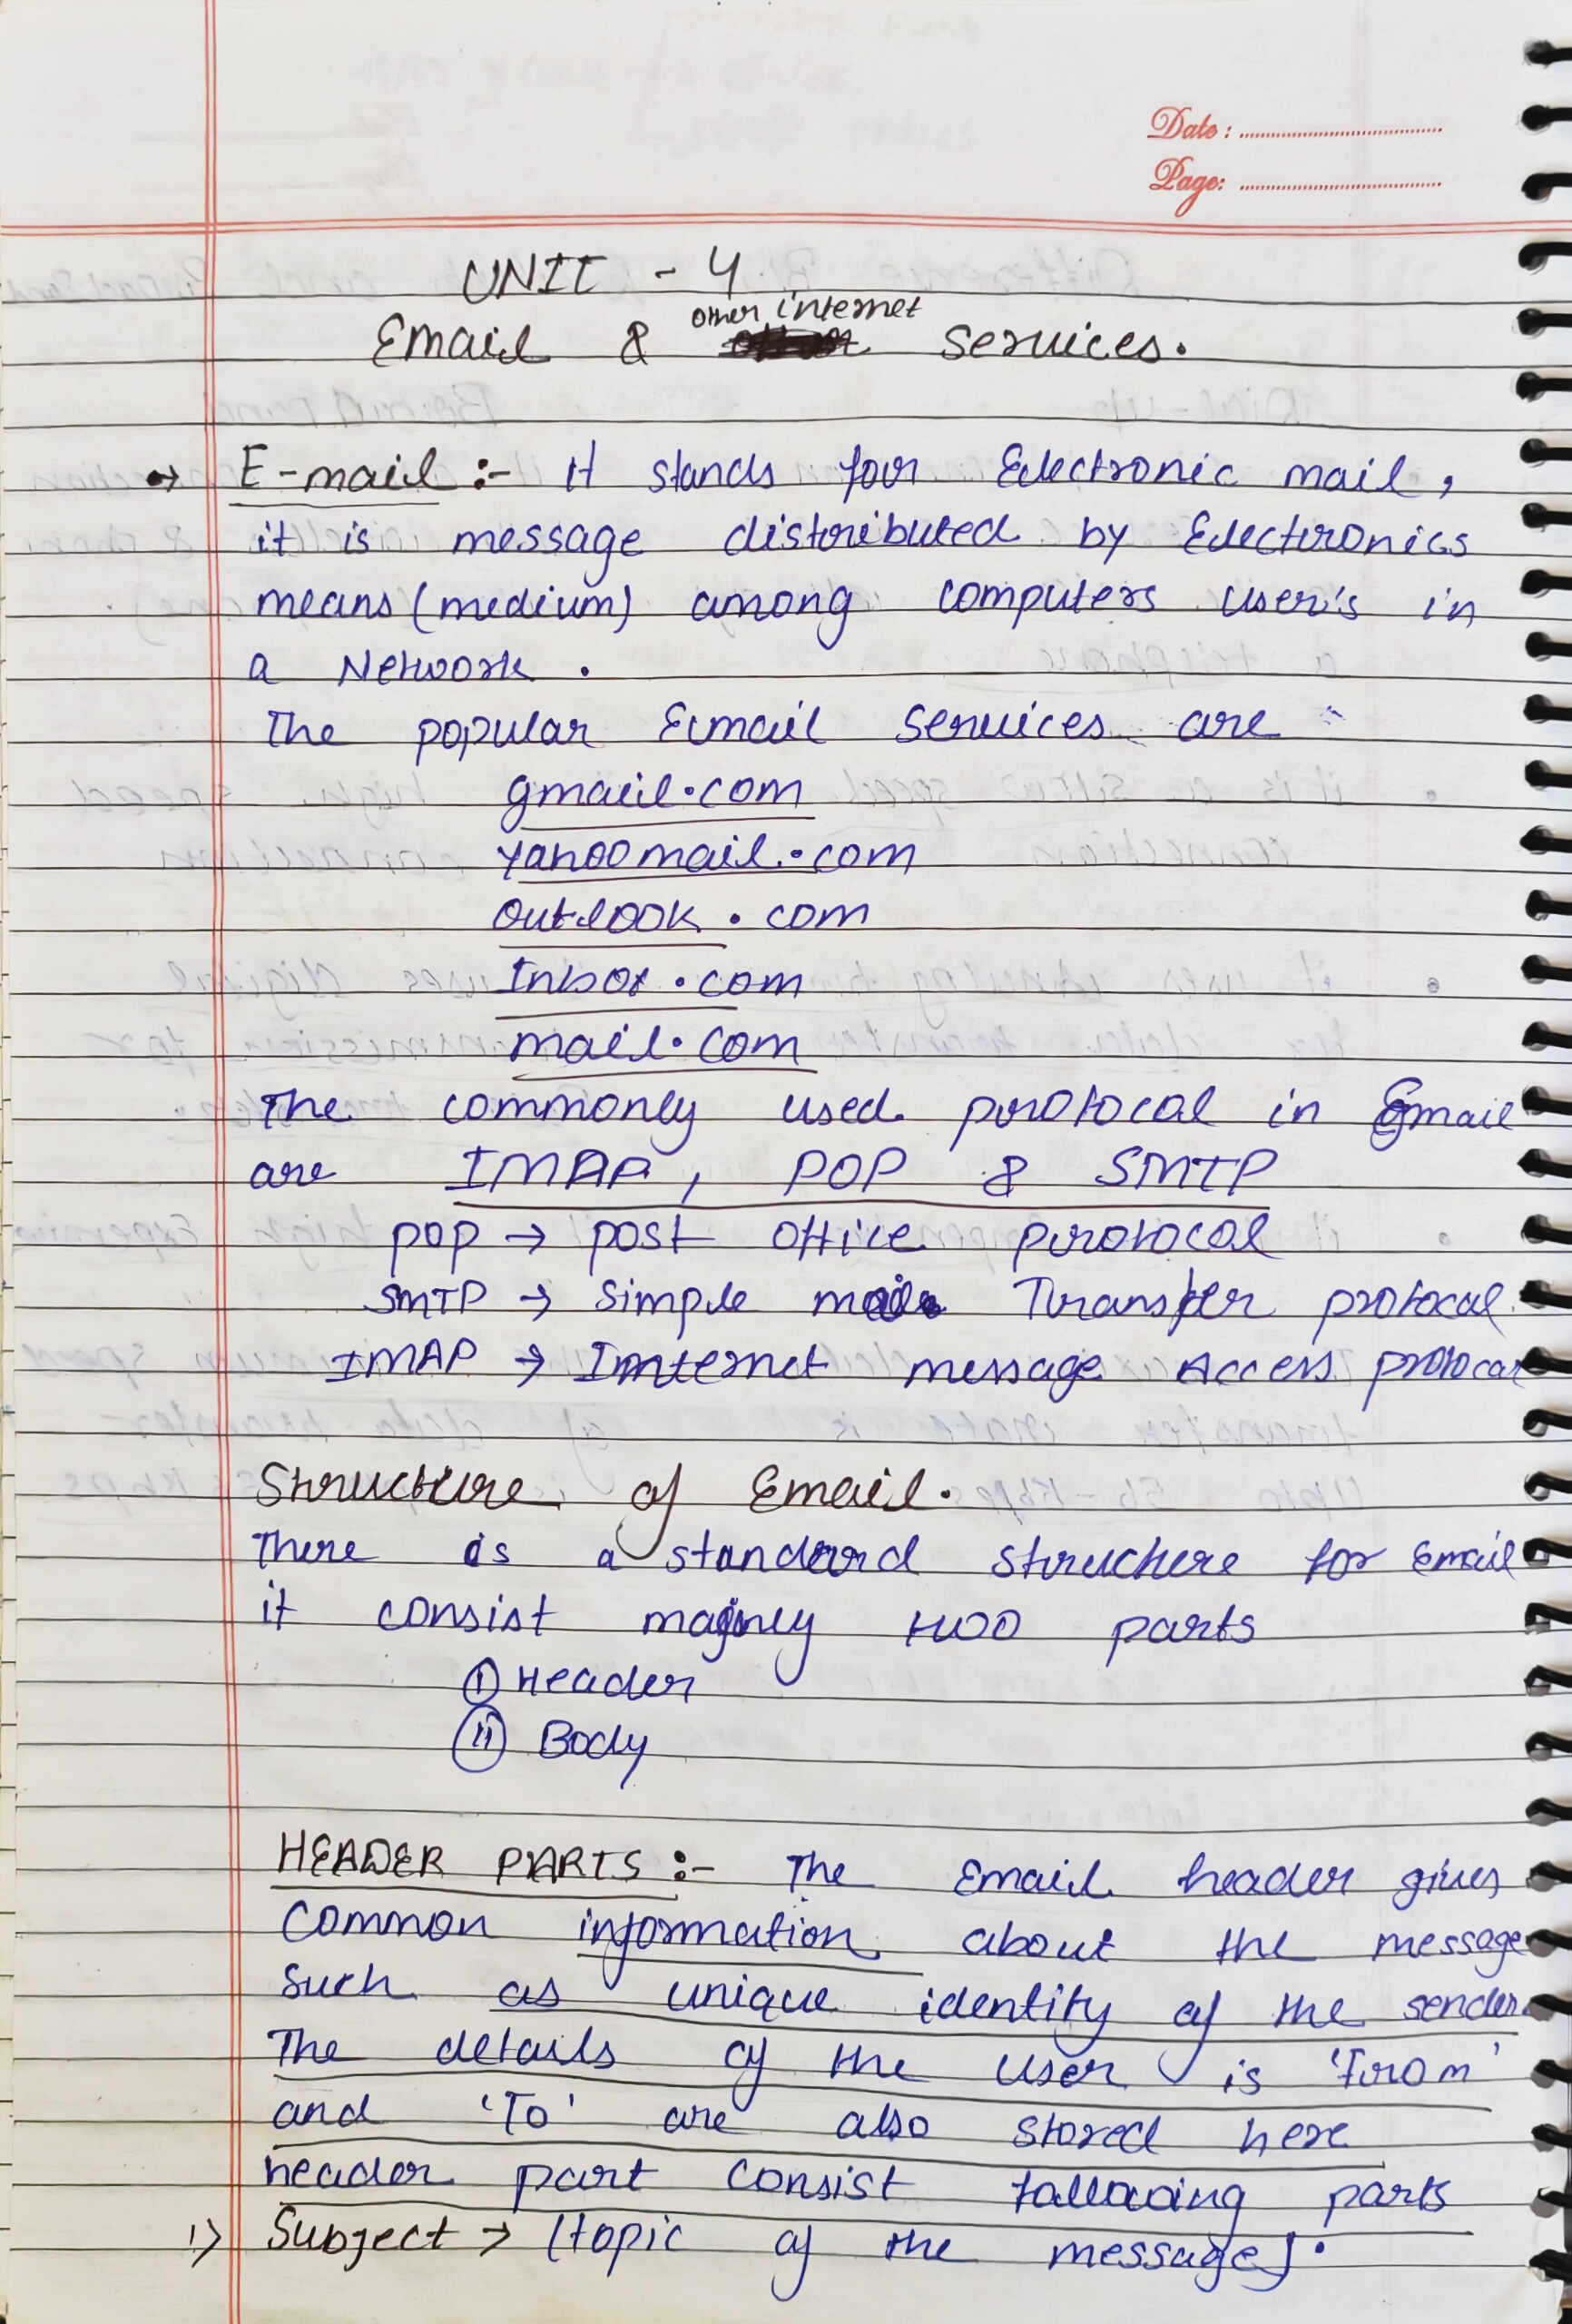 Date :
Page:
UNIT - 4
other internet
Email & services.
→ E-mail :- It stands for Electronic mail,
it is message distributed by Electronics
means (medium) among computers user's in
a Network .
The popular Email services are :-
gmail.com
yahoomail.com
outlook.com
Inbox.com
mail.com
The commonly used protocal in Email
are IMAP, POP & SMTP
pop → post office protocal
SMTP → Simple mail Transfer protocal.
IMAP → Internet message Access protocal
Structure of Email.
There is a standard structure for Email
it consist mainly two parts
(i) Header
(ii) Body
HEADER PARTS :- The Email header gives
common information about the message
such as unique identity of the sender
The details of the user is 'from'
and 'To' are also stored here
header part consist following parts
1) Subject → (topic of the message).